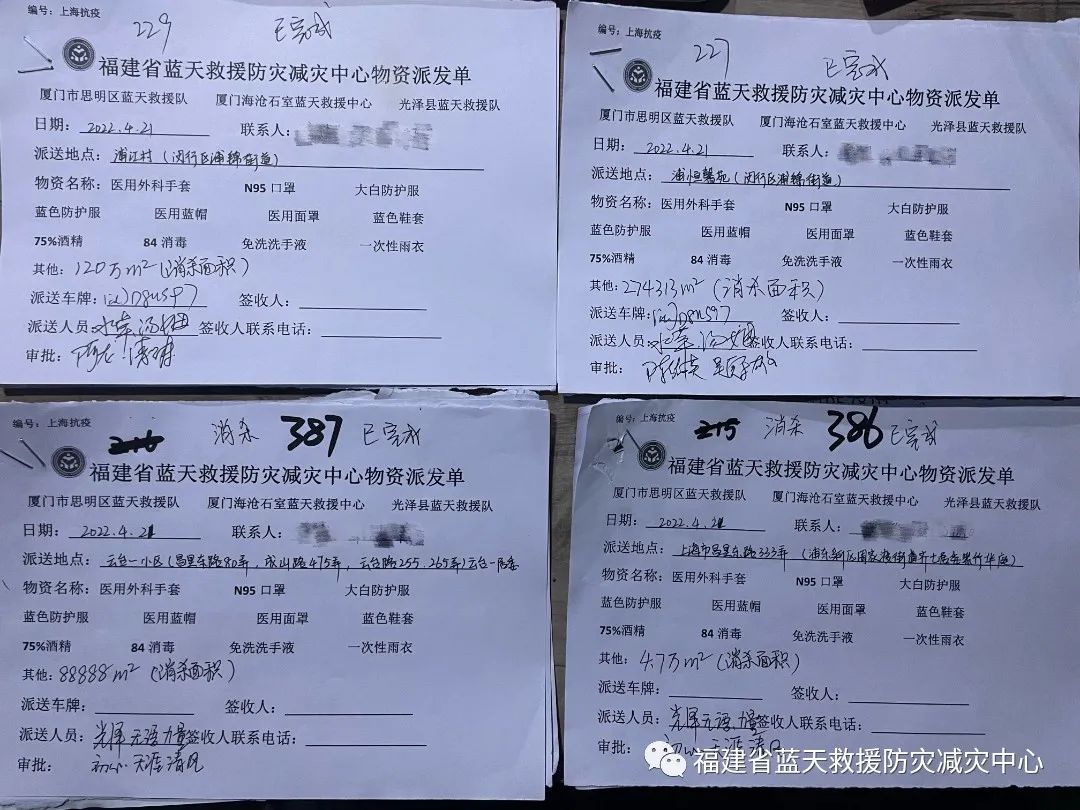 编号：上海抗疫
229 已完成
福建省蓝天救援防灾减灾中心物资派发单
厦门市思明区蓝天救援队 厦门海沧石室蓝天救援中心 光泽县蓝天救援队
日期：2022.4.21 联系人：
派送地点：浦江村（闵行区浦锦街道）
物资名称：医用外科手套 N95 口罩 大白防护服
蓝色防护服 医用蓝帽 医用面罩 蓝色鞋套
75%酒精 84 消毒 免洗洗手液 一次性雨衣
其他：120万m²（消杀面积）
派送车牌： 签收人：
派送人员： 签收人联系电话：
审批：
编号：上海抗疫
227 已完成
福建省蓝天救援防灾减灾中心物资派发单
厦门市思明区蓝天救援队 厦门海沧石室蓝天救援中心 光泽县蓝天救援队
日期：2022.4.21 联系人：
派送地点：浦恒馨苑（闵行区浦锦街道）
物资名称：医用外科手套 N95 口罩 大白防护服
蓝色防护服 医用蓝帽 医用面罩 蓝色鞋套
75%酒精 84 消毒 免洗洗手液 一次性雨衣
其他：274313m²（消杀面积）
派送车牌： 签收人：
派送人员： 签收人联系电话：
审批：
编号：上海抗疫
216 消杀 387 已完成
福建省蓝天救援防灾减灾中心物资派发单
厦门市思明区蓝天救援队 厦门海沧石室蓝天救援中心 光泽县蓝天救援队
日期：2022.4.21 联系人：
派送地点：云台一小区（昌里东路80弄，成山路475弄，云台路255、265弄）云台一居委
物资名称：医用外科手套 N95 口罩 大白防护服
蓝色防护服 医用蓝帽 医用面罩 蓝色鞋套
75%酒精 84 消毒 免洗洗手液 一次性雨衣
其他：88888m²（消杀面积）
派送车牌： 签收人：
派送人员： 签收人联系电话：
审批：初心 天涯清风
编号：上海抗疫
215 消杀 386 已完成
福建省蓝天救援防灾减灾中心物资派发单
厦门市思明区蓝天救援队 厦门海沧石室蓝天救援中心 光泽县蓝天救援队
日期：2022.4.21 联系人：
派送地点：上海市昌里东路333弄（浦东新区周家渡街道齐七居委
物资名称：医用外科手套 N95 口罩 大白防护服
蓝色防护服 医用蓝帽 医用面罩 蓝色鞋套
75%酒精 84 消毒 免洗洗手液 一次性雨衣
其他：4.7万m²（消杀面积）
派送车牌： 签收人：
派送人员： 签收人联系电话：
审批：初心 天涯清风
福建省蓝天救援防灾减灾中心